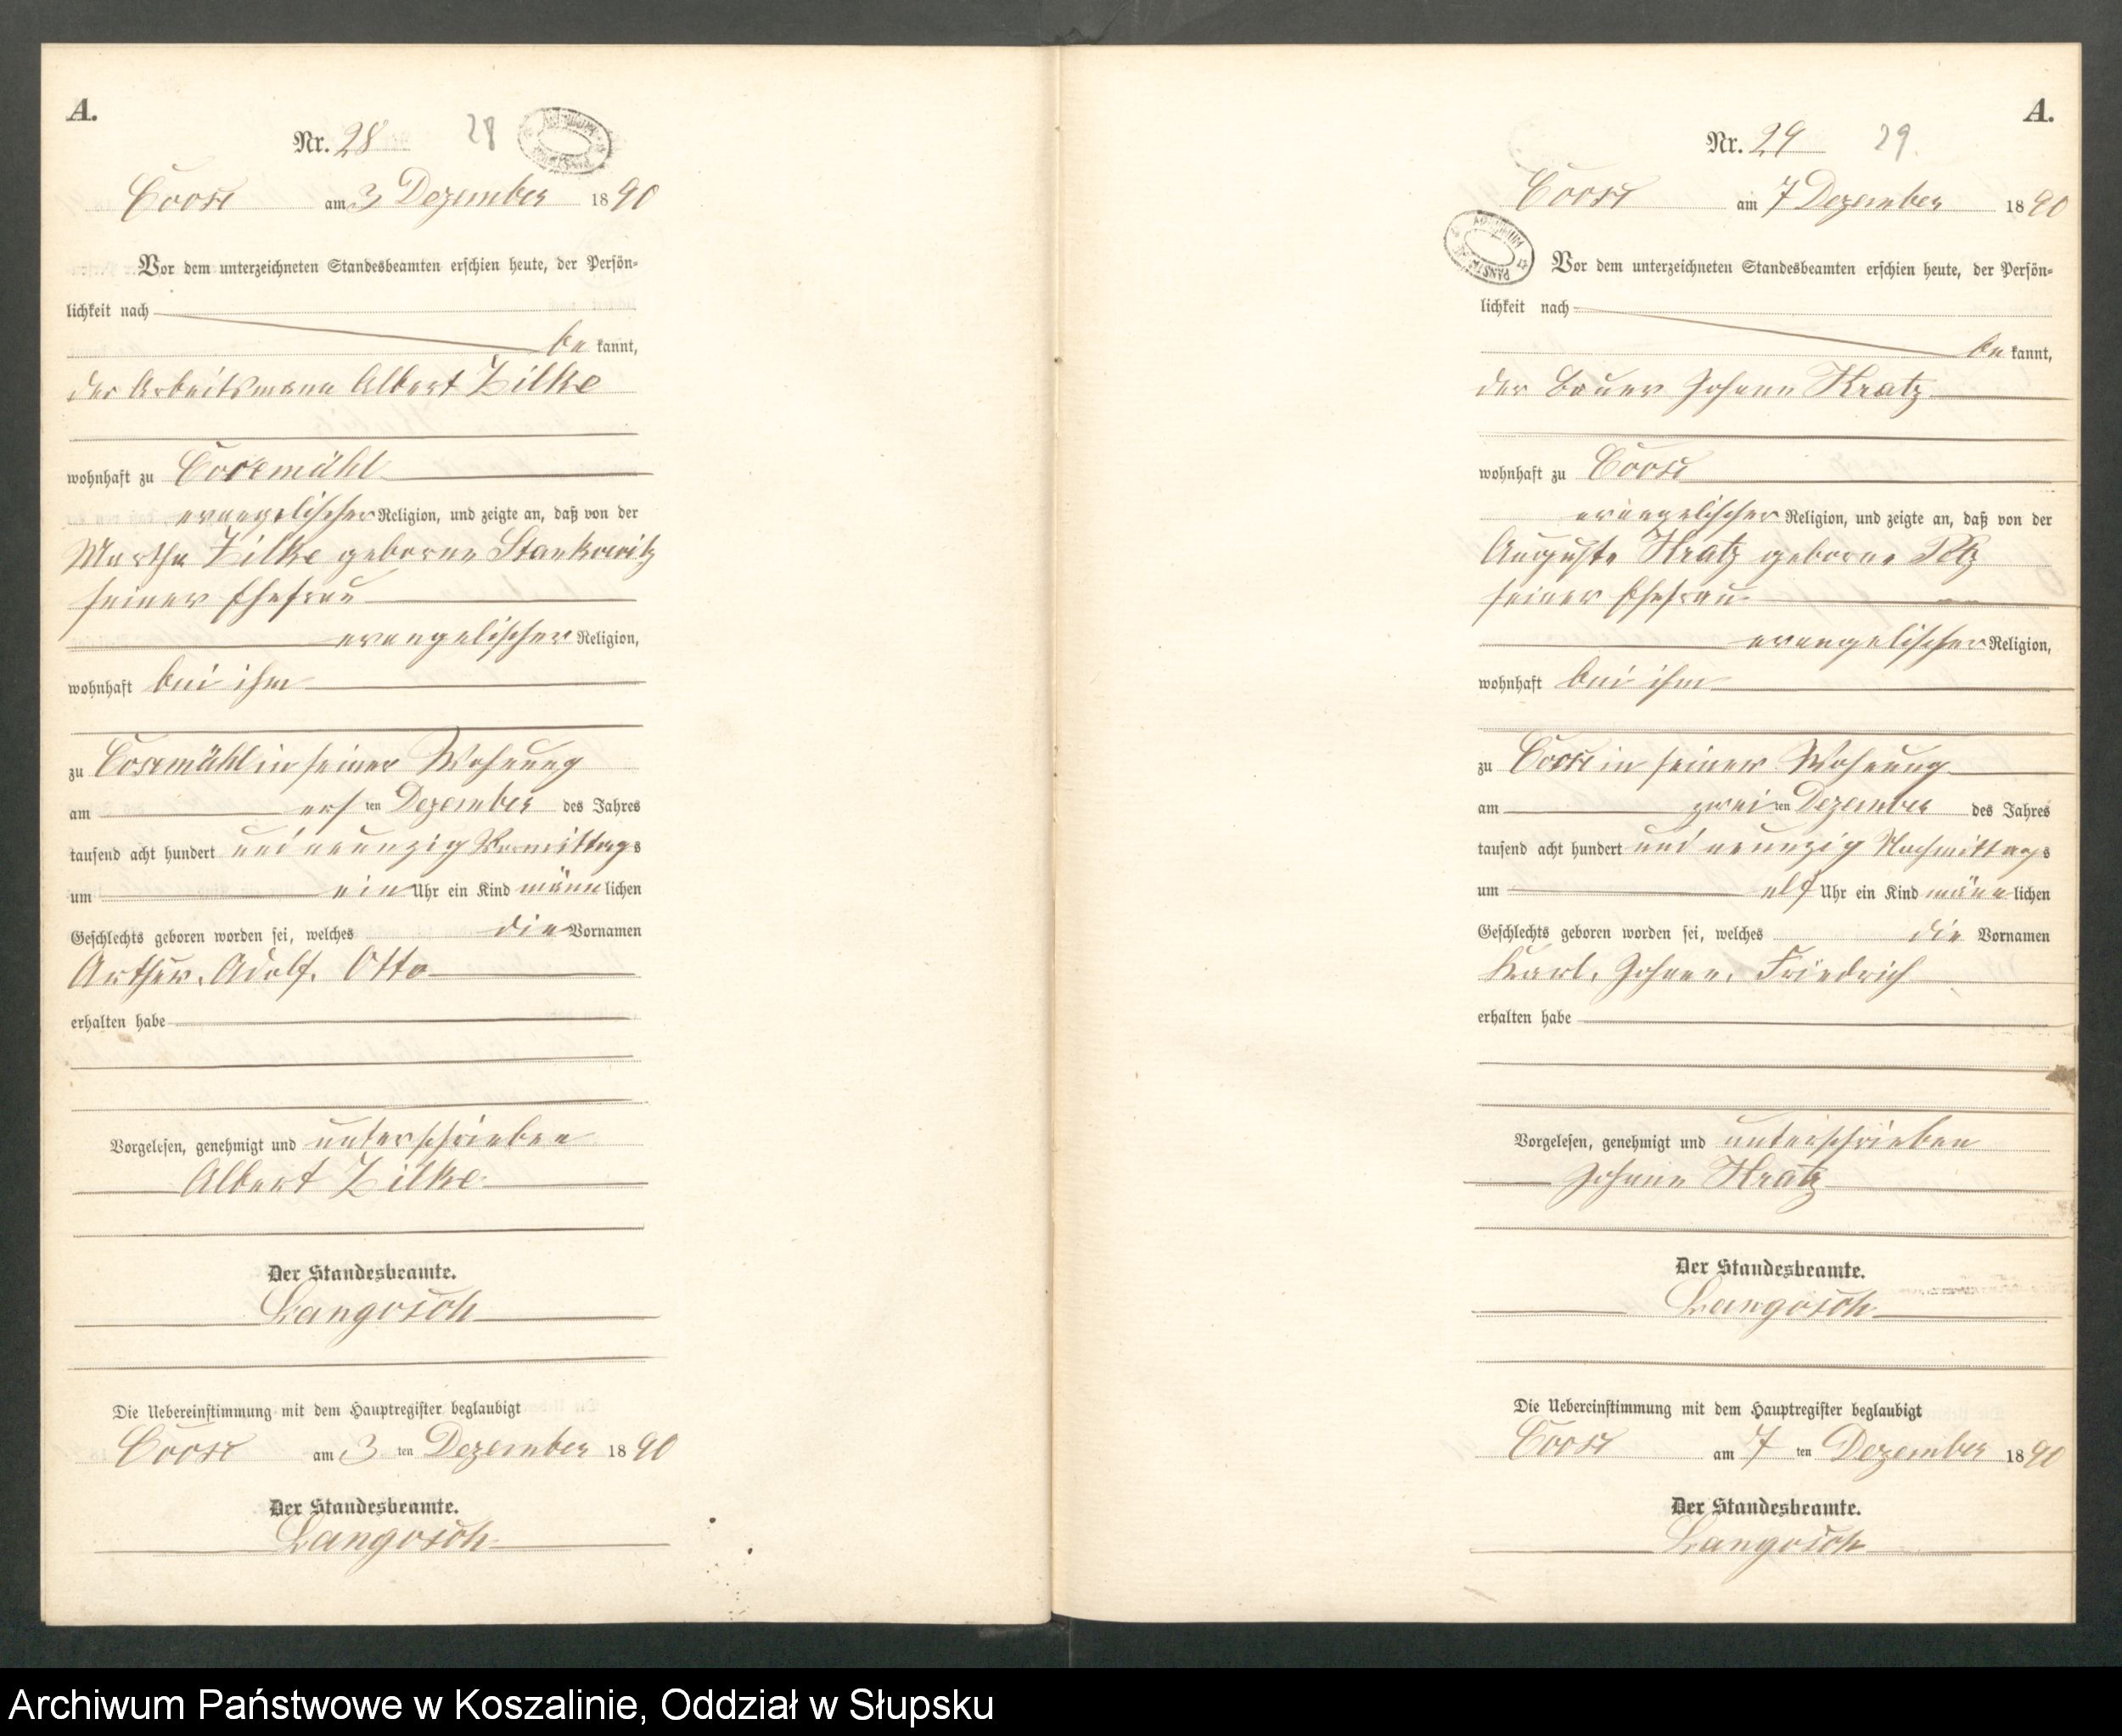 A.
Nr. 28 28
Coose am 3 Dezember 1890
Vor dem unterzeichneten Standesbeamten erschien heute, der Persön-
lichkeit nach
be kannt,
der Arbeitsmann Albert Zilke
wohnhaft zu Coosemühl
evangelischer Religion, und zeigte an, daß von der
Martha Zilke geborne Stankowitz
seiner Ehefrau
evangelischer Religion,
wohnhaft bei ihm
zu Coosemühl in seiner Wohnung
am ersten Dezember des Jahres
tausend acht hundert und neunzig Vormittags
um ein Uhr ein Kind männlichen
Geschlechts geboren worden sei, welches die Vornamen
Arthur, Adolf, Otto
erhalten habe
Vorgelesen, genehmigt und unterschrieben
Albert Zilke
Der Standesbeamte.
Langosch
Die Uebereinstimmung mit dem Hauptregister beglaubigt
Coose am 3 ten Dezember 1890
Der Standesbeamte.
Langosch
A.
Nr. 29 29.
Coose am 7 Dezember 1890
Vor dem unterzeichneten Standesbeamten erschien heute, der Persön-
lichkeit nach
be kannt,
der Bauer Johann Kratz
wohnhaft zu Coose
evangelischer Religion, und zeigte an, daß von der
Auguste Kratz geborne
seiner Ehefrau
evangelischer Religion,
wohnhaft bei ihm
zu Coose in seiner Wohnung
am zweiten Dezember des Jahres
tausend acht hundert und neunzig Nachmittags
um elf Uhr ein Kind männlichen
Geschlechts geboren worden sei, welches die Vornamen
Karl, Johann, Friedrich
erhalten habe
Vorgelesen, genehmigt und unterschrieben
Johann Kratz
Der Standesbeamte.
Langosch
Die Uebereinstimmung mit dem Hauptregister beglaubigt
Coose am 7 ten Dezember 1890
Der Standesbeamte.
Langosch
Archiwum Państwowe w Koszalinie, Oddział w Słupsku